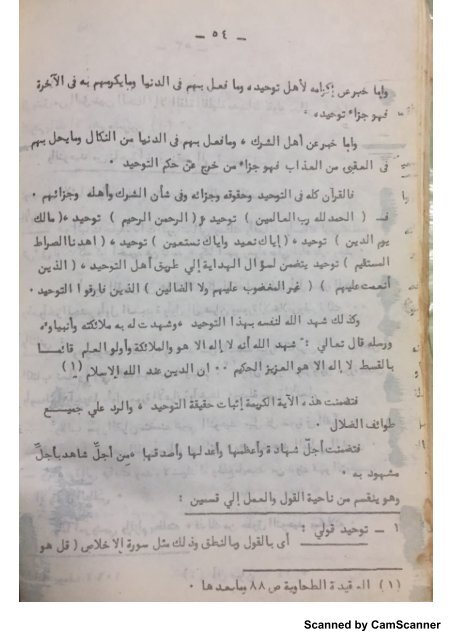 ـ ٥٤ ـ
واما خبر عن إكرامه لأهل توحيده وما فعل بهم فى الدنيا ومايكرمهم به فى الآخرة
فهو جزاء توحيده ٠
واما خبر عن أهل الشرك ، ومافعل بهم فى الدنيا من النكال ومايحل بهم
فى العقبى من العذاب فهو جزاء من خرج عن حكم التوحيد ٠
فالقرآن كله فى التوحيد وحقوقه وجزائه وفى شأن الشرك وأهله وجزائهم ٠
فـ ( الحمدلله رب العالمين ) توحيد و( الرحمن الرحيم ) توحيد ،( مالك
يوم الدين ) توحيد ،( إياك نعبد واياك نستعين ) توحيد ،( اهدنا الصراط
المستقيم ) توحيد يتضمن لسؤال الهداية إلي طريق أهل التوحيد ،( الذين
أنعمت عليهم ) ( غير المغضوب عليهم ولا الضالين ) الذين فارقوا التوحيد ٠
وكذلك شهد الله لنفسه بهذا التوحيد ، وشهدت له به ملائكته وأنبياؤه
ورسله قال تعالي : " شهد الله أنه لا إله الا هو والملائكة وأولو العلم قائما
بالقسط لا إله الا هو العزيز الحكيم ٠٠ ان الدين عند الله الإسلام (١)
فتضمنت هذه الآية الكريمة إثبات حقيقة التوحيد ، والرد علي جميع
طوائف الضلال ٠
فتضمنت أجلّ شهادة وأعظمها وأعدلها وأصدقها ، من أجلِّ شاهد بأجلِّ
مشهود به ٠
وهو ينقسم من ناحية القول والعمل إلي قسمين :
١ ـ توحيد قولي : أى بالقول وبالنطق وذلك مثل سورة الإخلاص ( قل هو
(١) العقيدة الطحاوية ص ٨٨ ومابعدها ٠
Scanned by CamScanner